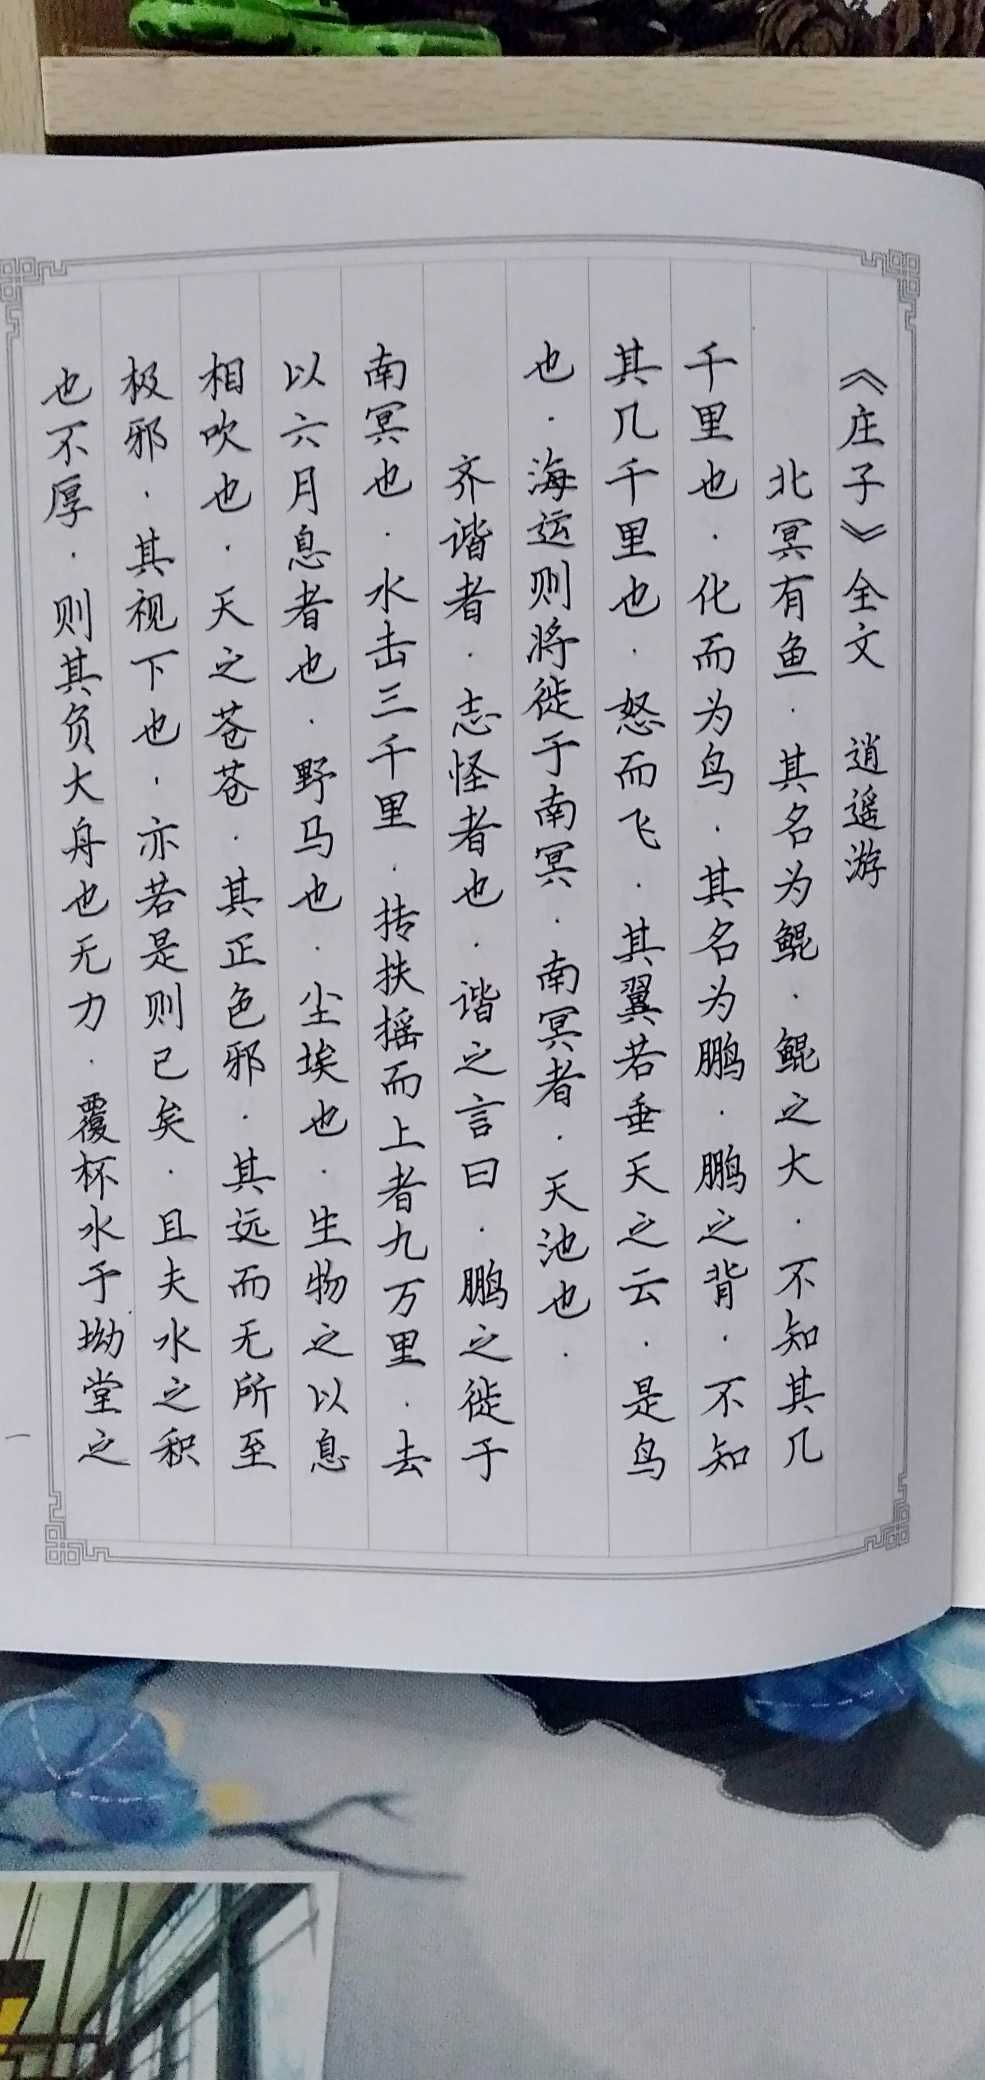 《庄子》全文 逍遥游
北冥有鱼．其名为鲲．鲲之大．不知其几
千里也．化而为鸟．其名为鹏．鹏之背．不知
其几千里也．怒而飞．其翼若垂天之云．是鸟
也．海运则将徙于南冥．南冥者．天池也．
齐谐者．志怪者也．谐之言曰．鹏之徙于
南冥也．水击三千里．抟扶摇而上者九万里．去
以六月息者也．野马也．尘埃也．生物之以息
相吹也．天之苍苍．其正色邪．其远而无所至
极邪．其视下也．亦若是则已矣．且夫水之积
也不厚．则其负大舟也无力．覆杯水于坳堂之
一